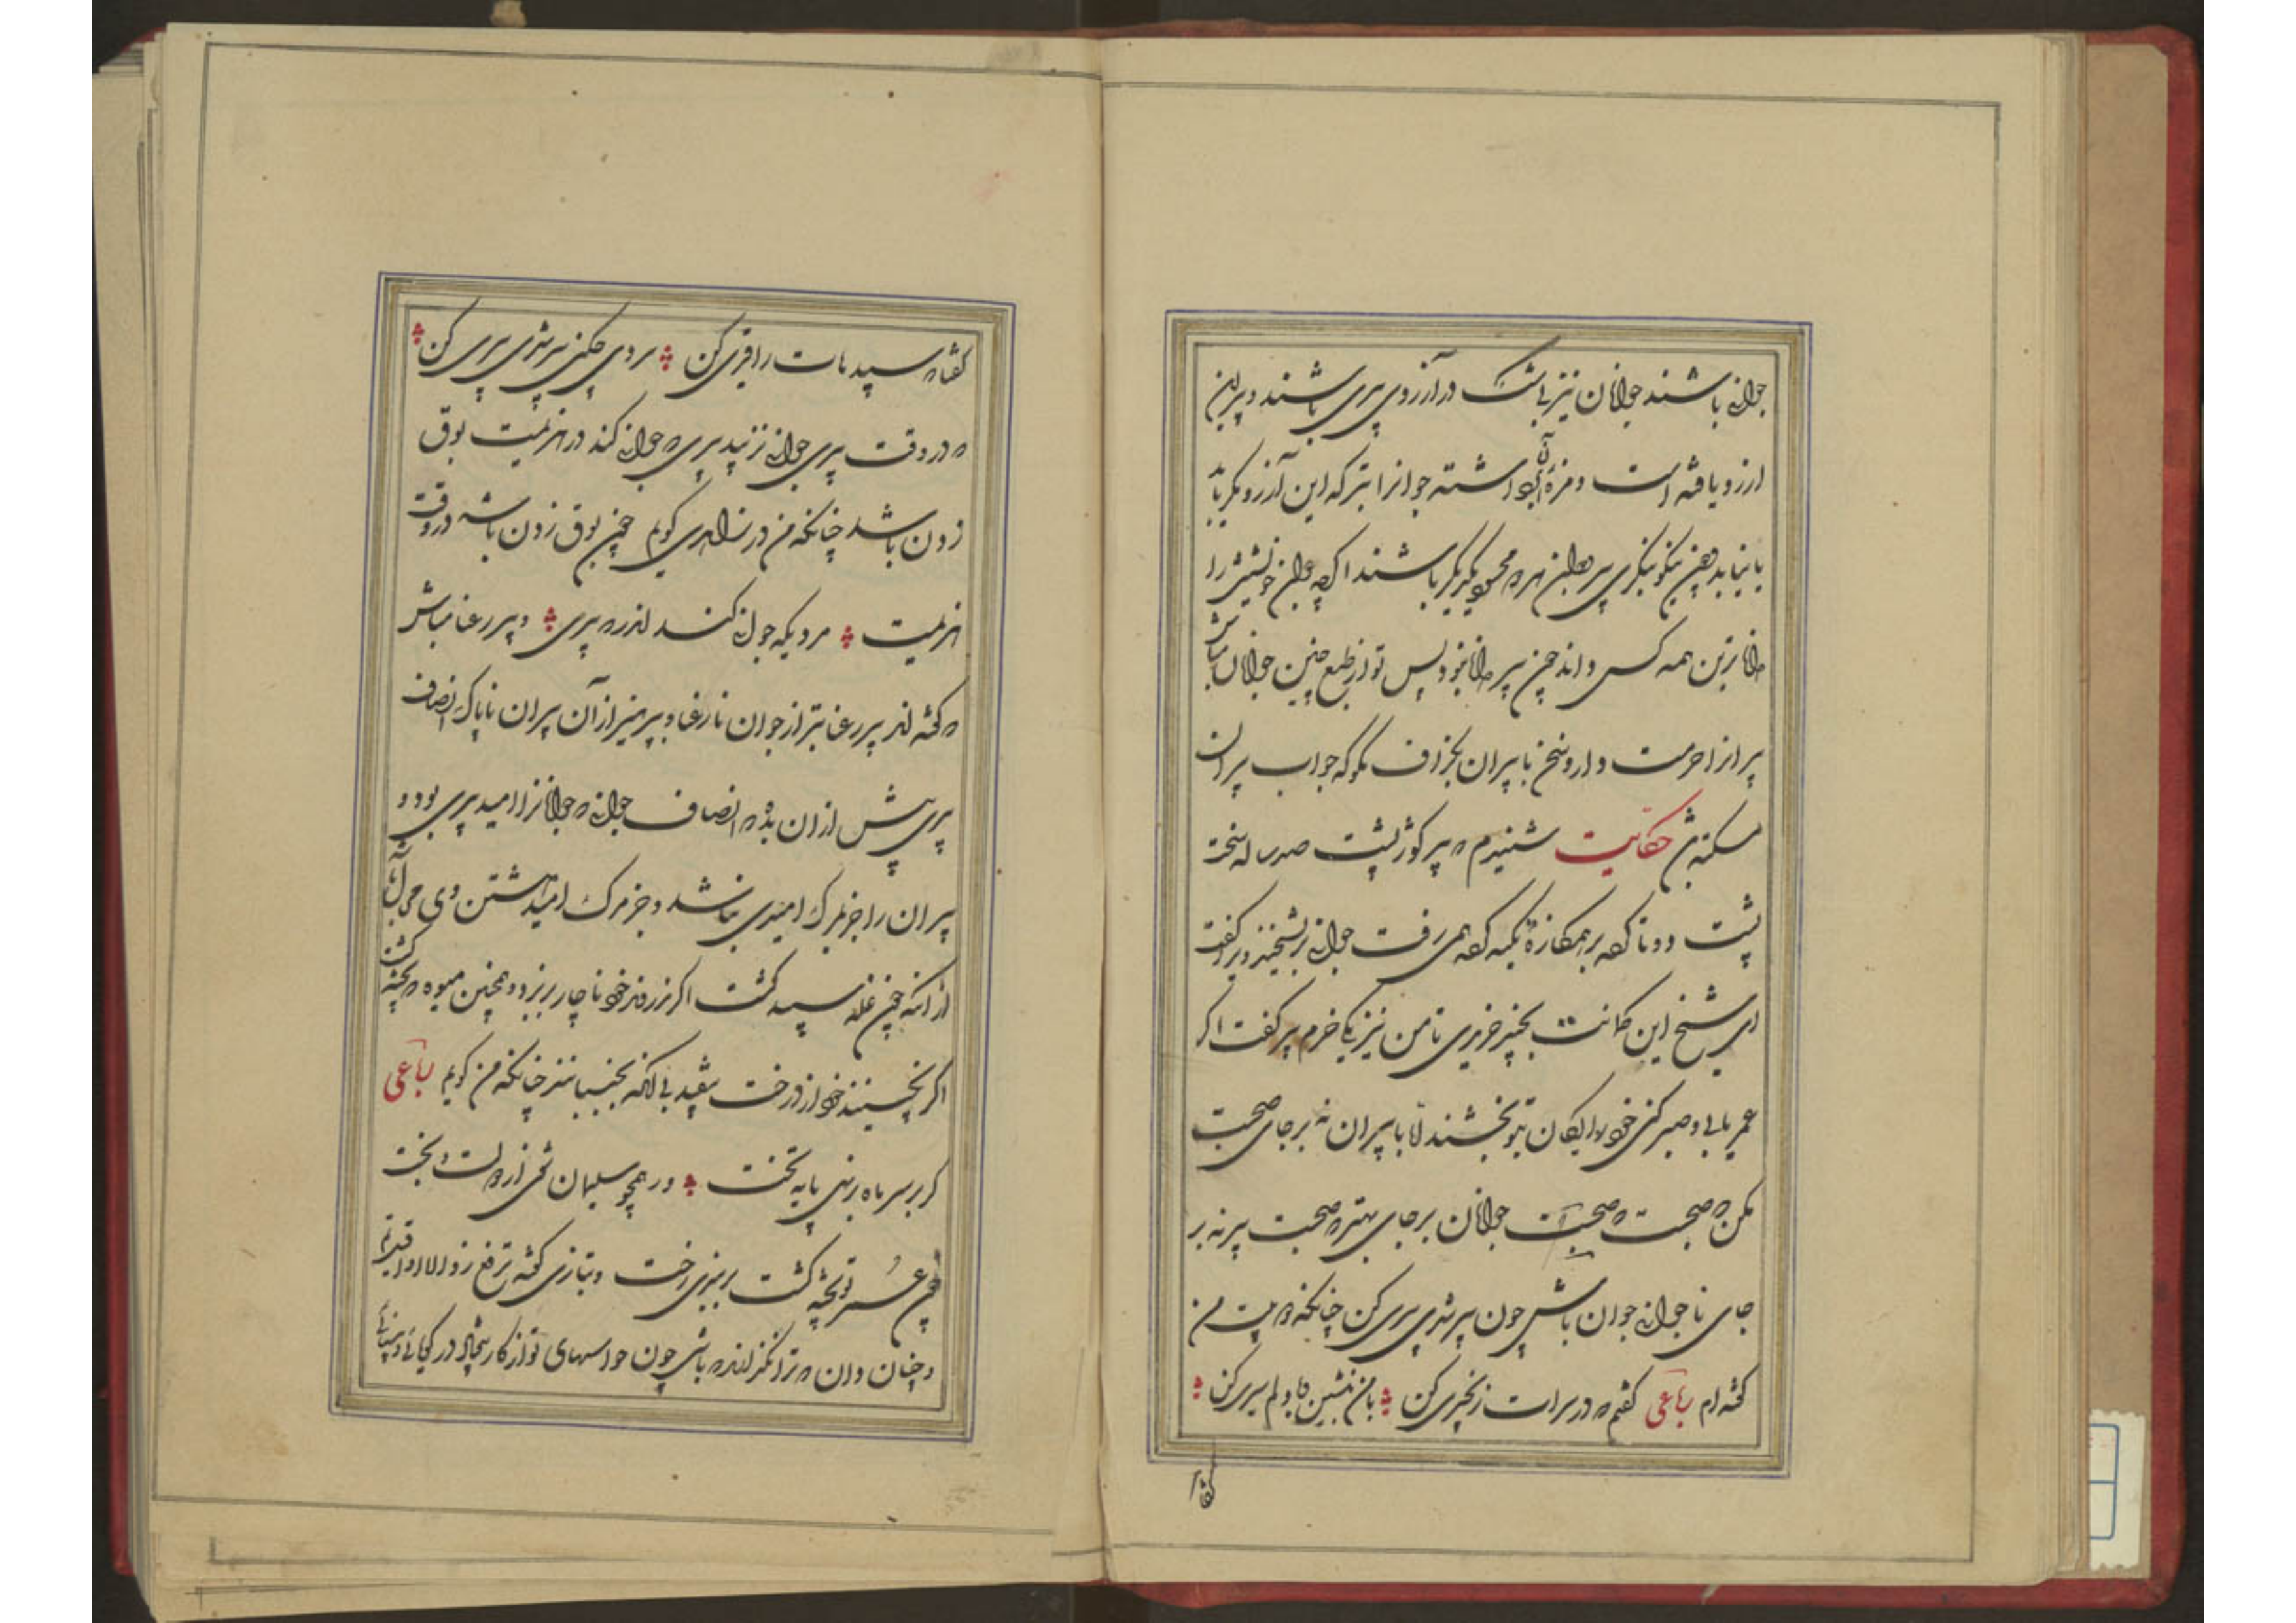 جوانی باشند جوانان نیز بی شک در آرزوی پیری باشند و پیر این
ارزو یافته است و مزهٔ آن برداشته جوانرا بتر که این آرزو مگر یابد
یا نیابد چون نیکو بنگری پیر و جوان هر دو محسود یکدیگر باشند اگرچه جوان خویشتن را
داناترین همه کس داند چون پیر دانا نبود پس تو از طبع چنین جوانان مباش
پیرانرا حرمت دار و سخن با پیران بگزاف مگو که جواب پیران
مسکت باشد حکایت شنیدم که پیر کوژپشت صد ساله سخت
پشت دوتا کرده بر عکازهٔ تکیه کرده همی رفت جوانی بریشخند ویرا گفت
ای شیخ این کمانت بچند خریدی تا من نیز یکی خرم پیر گفت اگر
عمر یابی و صبر کنی خود رایگان بتو بخشند اما با پیران نه بر جای صحبت
مکن که صحبت که صحبت جوانان بر جای بهتر که صحبت پیر نه بر
جای تا جوانی جوان باش چون پیر شدی پیری کن چنانکه در بیت من
گفته ام رباعی گفتم که در سرات زنجیری کن با من بنشین و بادلم میری کن
گفتا که سپیدهات را قیری کن سردی چکنی پیر شدی پیری کن
که در وقت پیری جوانی نزیبد پیری که جوانی کند در هزیمت بوق
زدن باشد چنانکه من در زاهدی گویم چون بوق زدن باشد در وقت
هزیمت مردیکه جوانی کند اندر پیری و پیر رعنا مباش
که گفته اند پیر رعنا بتر از جوان نارعنا و بپرهیز از آن پیران ناپاک انصاف
پیری بیش از آن بده که انصاف جوانی که جوانانرا امید پیری بود و
پیران را جز مرگ امیدی نباشد و جز مرگ امید داشتن وی محال باشد
از انکه چون غله سپید گشت اگر ندروند خود ناچار بریزد و همچنین میوه که پخته گشت
اگر نچینند خود از درخت بیفتد بی آنکه بجنبانند چنانکه من گویم رباعی
گر بر سر ماه بر نهی پایه تخت ور همچو سلیمان شوی از دولت و بخت
چون عمر تو پخته گشت بربندی رخت و بتازی گفته
و چنان دان که ترا نگذارند که باشی چون حواسهای تو از کار بیفتاد در گویائی و بینائی
گفتا